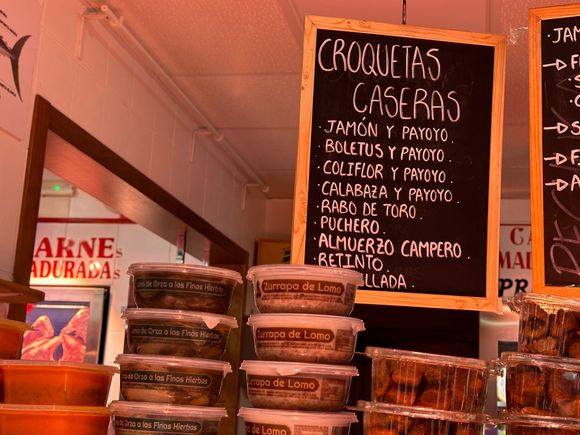 CROQUETAS
CASERAS
· JAMÓN Y PAYOYO.
· BOLETUS Y PAYOYO.
· COLIFLOR Y PAYOYO.
· CALABAZA Y PAYOYO.
· RABO DE TORO.
· PUCHERO.
· ALMUERZO CAMPERO.
RETINTO
LLADA.
· JAM
ARNEs
ADURADAs
CA
MAD
Lomo de Orza a las Finas Hierbas
Lomo de Orza a las Finas Hierbas
Lomo de Orza a las Finas Hierbas
Lomo de Orza a las Finas Hierbas
Zurrapa de Lomo
Zurrapa de Lomo
urrapa de Lomo
Zurrapa de Lomo